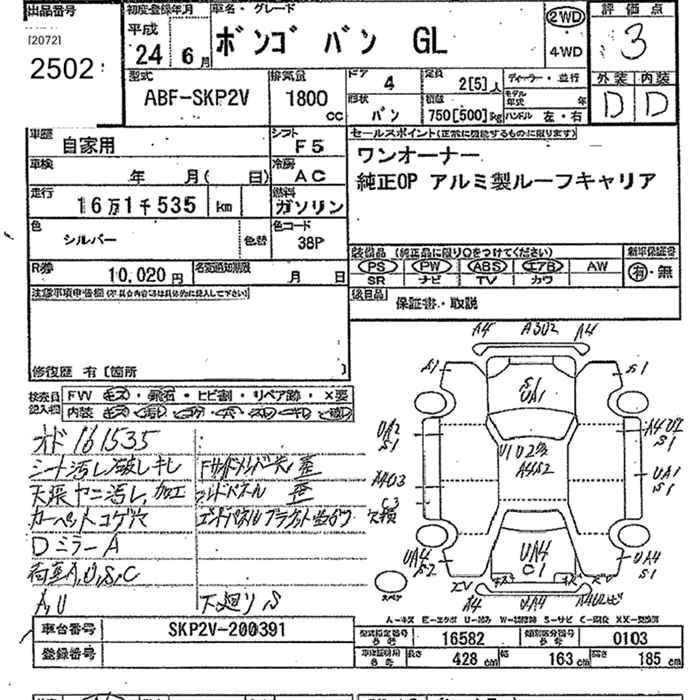 出品番号
[2072]
2502
初度登録年月
平成
24 6月
車名・グレード
ボンゴ バン GL
2WD
4WD
評価点
3
型式
ABF-SKP2V
排気量
1800
cc
ドア
4
形状
バン
定員
2[5]人
積載
750[500]kg
ディーラー・並行
モデル年式 年
ハンドル 左・右
外装 内装
D D
車歴
自家用
シフト
F5
車検
年 月( 日)
冷房
AC
走行
16万1千535 km
燃料
ガソリン
色
シルバー
色替
色コード
38P
R券
10,020円
名変通知期限
月 日
セールスポイント(正常に機能するものに限ります)
ワンオーナー
純正OP アルミ製ルーフキャリア
装備品 (純正品に限り○をつけてください)
PS PW ABS エアB AW
SR ナビ TV カワ
新車保証書
有・無
後日品
保証書・取説
注意事項申告欄
修復歴 有〔箇所 〕
検査員記入欄
FW キズ・飛石・ヒビ割・リペア跡・X要
内装
オド 161535
シート汚し破レキレ
天張ヤニ汚し,加工
カーペットコゲ穴
Dミラー A
荷室A,U,S,C
A,U
下廻り,S
A4 A3U2 A4
S1 S1
S1
UA1
UA2
S1
A4U2
S1
A4S2
A4U3
UA1
S1
C3
欠損
UA4
S2
UA4
C1
UA4
S1
A4 UA4
スペア
A-キズ E-エクボ U-凹み W-補修跡 S-サビ C-腐食 XX-交換済
車台番号
SKP2V-200391
登録番号
型式指定番号
16582
類別区分番号
0103
長さ
428 cm
幅
163 cm
高さ
185 cm